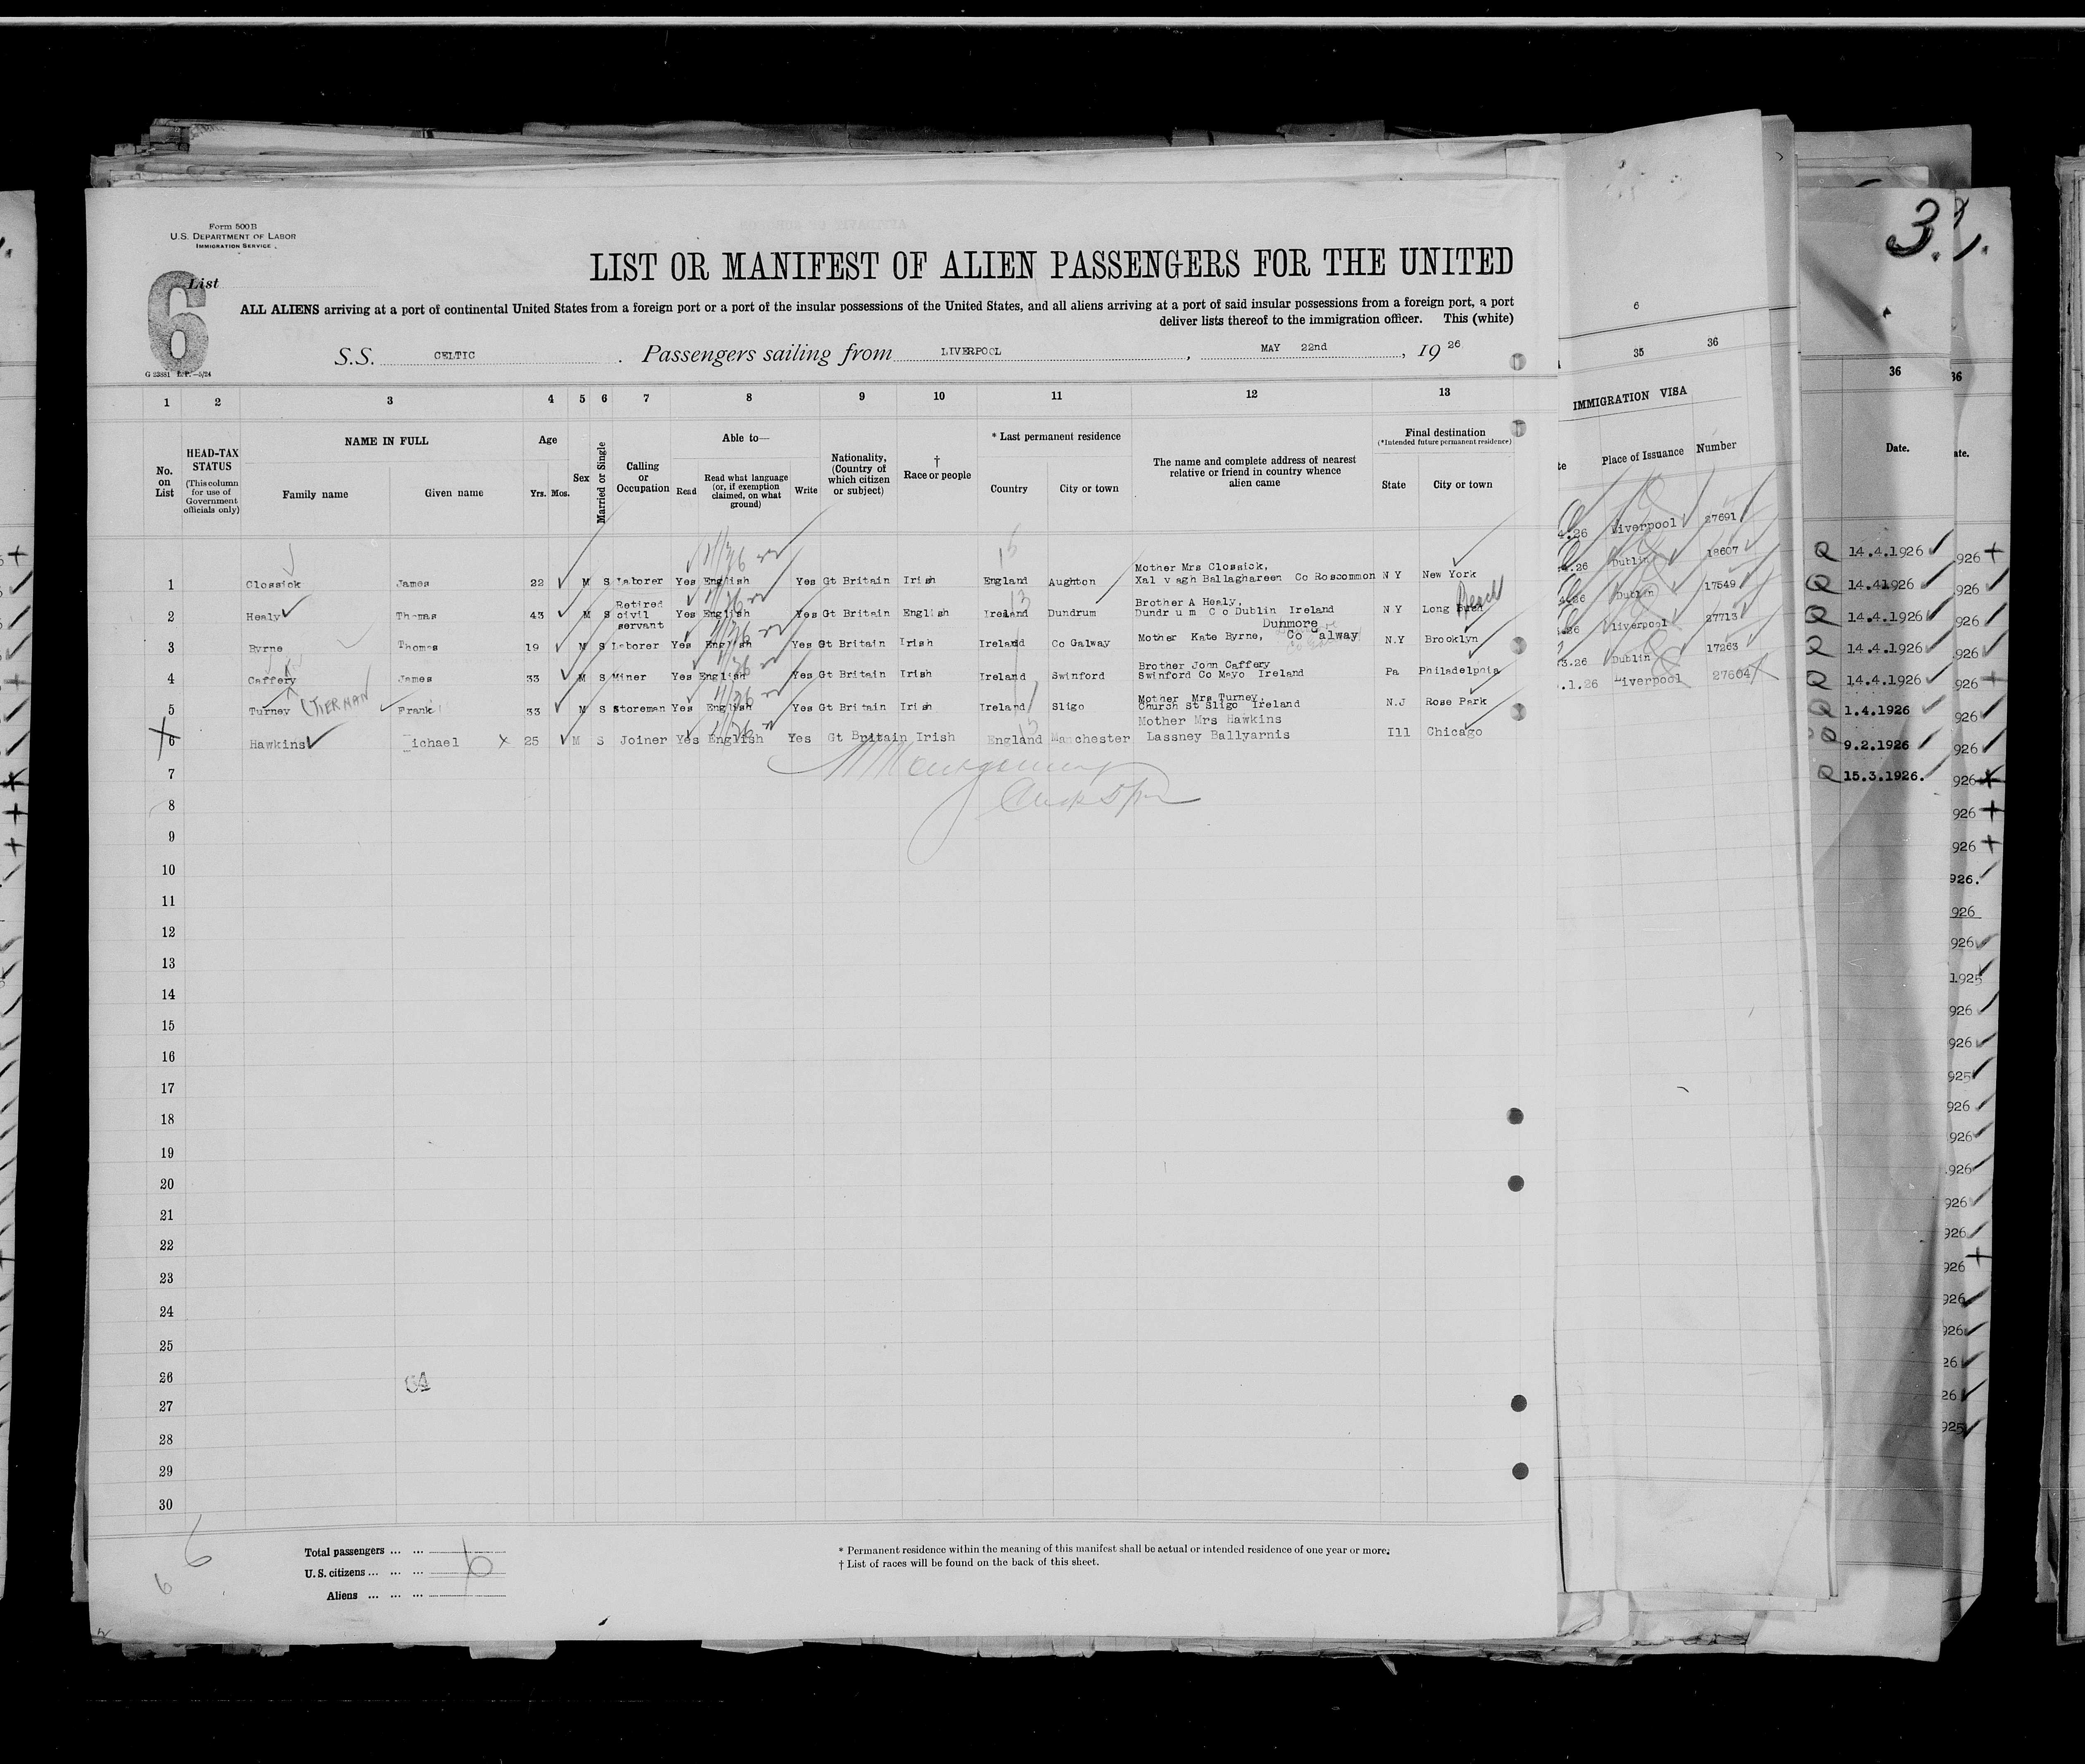 Form 500B
U.S. DEPARTMENT OF LABOR
IMMIGRATION SERVICE
List
6
G 23881 L.P.—5/24
LIST OR MANIFEST OF ALIEN PASSENGERS FOR THE UNITED
ALL ALIENS arriving at a port of continental United States from a foreign port or a port of the insular possessions of the United States, and all aliens arriving at a port of said insular possessions from a foreign port, a port
deliver lists thereof to the immigration officer. This (white)
S.S. CELTIC . Passengers sailing from LIVERPOOL , MAY 22nd , 19 26
1 2 3 4 5 6 7 8 9 10 11 12 13
No. on List
HEAD-TAX STATUS
(This column for use of Government officials only)
NAME IN FULL
Family name
Given name
Age
Yrs. Mos.
Sex
Married or Single
Calling or Occupation
Able to—
Read
Read what language (or, if exemption claimed, on what ground)
Write
Nationality, (Country of which citizen or subject)
†
Race or people
* Last permanent residence
Country
City or town
The name and complete address of nearest relative or friend in country whence alien came
Final destination
(*Intended future permanent residence)
State
City or town
1 Clossick James 22 M S Laborer Yes English Yes Gt Britain Irish England Aughton Mother Mrs Clossick, Ballaghareen Co Roscommon N Y New York
2 Healy Thomas 43 M S Retired civil servant Yes English Yes Gt Britain English Ireland Dundrum Brother A Healy, Dundrum Co Dublin Ireland N Y Long Beach
3 Byrne Thomas 19 M S Laborer Yes English Yes Gt Britain Irish Ireland Co Galway Mother Kate Byrne, Dunmore Co Galway N.Y Brooklyn
4 Caffery James 33 M S Miner Yes English Yes Gt Britain Irish Ireland Swinford Brother John Caffery Swinford Co Mayo Ireland Pa Philadelphia
5 Turney (TIERNAN Frank 33 M S Storeman Yes English Yes Gt Britain Irish Ireland Sligo Mother Mrs Turney, Church St Sligo Ireland N.J Rose Park
6 Hawkins Michael X 25 M S Joiner Yes English Yes Gt Britain Irish England Manchester Mother Mrs Hawkins Lassney Ballyarnis Ill Chicago
7
8
9
10
11
12
13
14
15
16
17
18
19
20
21
22
23
24
25
26
27
28
29
30
6A
6
6
Total passengers ... ...
U.S. citizens ... ... ...
Aliens ... ... ...
6
* Permanent residence within the meaning of this manifest shall be actual or intended residence of one year or more.
† List of races will be found on the back of this sheet.
6
35 36
IMMIGRATION VISA
Place of Issuance Number
4.26 Liverpool 27691
Dublin 18607
4.26 Dublin 17549
Liverpool 27713
3.26 Dublin 17263
.1.26 Liverpool 27604
3.
36
Date.
14.4.1926
14.41926
14.4.1926
14.4.1926
14.4.1926
1.4.1926
9.2.1926
15.3.1926.
36
ate.
926
926
926
926
926
926
926
926
926
926
926.
926
926
1925
926
926
925
926
926
926
926
926
926
926
926
26
26
925